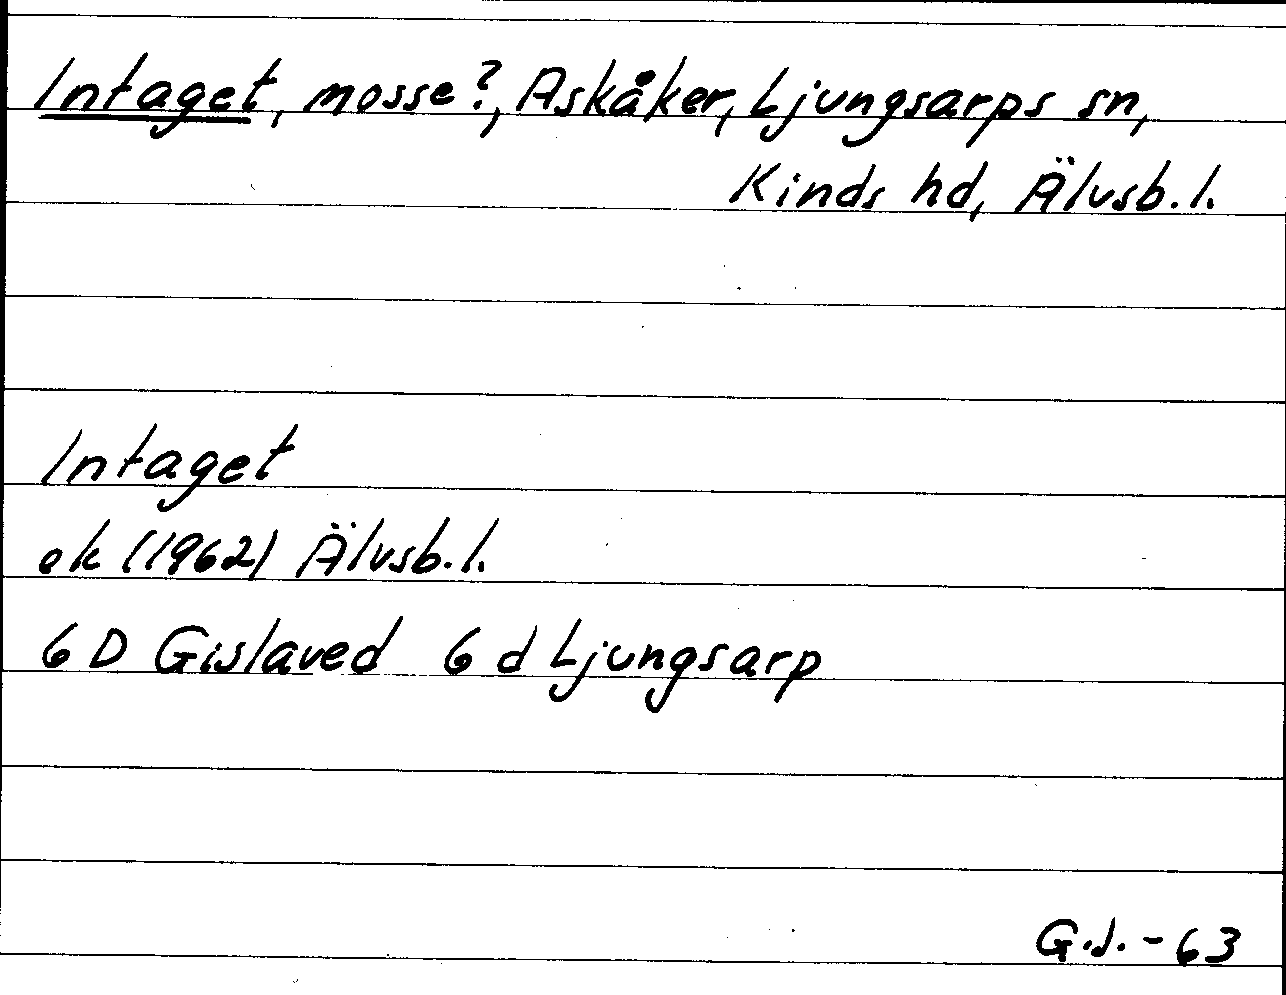 Intaget, mosse?, Askåker, Ljungsarps sn,
Kinds hd, Älvsb. l.
Intaget
ek (1962) Älvsb. l.
6 D Gislaved 6 d Ljungsarp
G.J. - 63